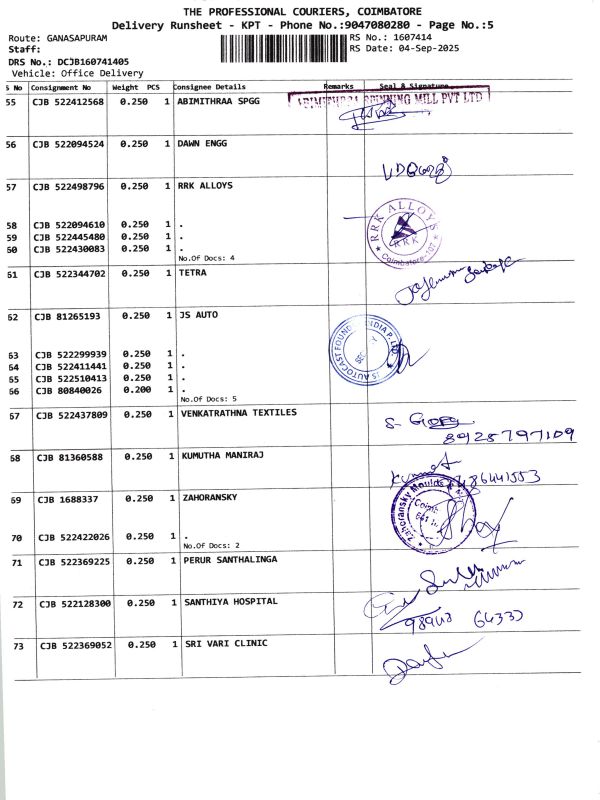 THE PROFESSIONAL COURIERS, COIMBATORE
Delivery Runsheet - KPT - Phone No.:9047080280 - Page No.:5
Route: GANASAPURAM
RS No.: 1607414
Staff:
RS Date: 04-Sep-2025
DRS No.: DCJB160741405
Vehicle: Office Delivery
S No Consignment No Weight PCS Consignee Details Remarks Seal & Signature
55 CJB 522412568 0.250 1 ABIMITHRAA SPGG
SPINNING MILL PVT LTD
56 CJB 522094524 0.250 1 DAWN ENGG
57 CJB 522498796 0.250 1 RRK ALLOYS
RRK ALLOYS
RRK
Coimbatore-107
58 CJB 522094610 0.250 1 .
59 CJB 522445480 0.250 1 .
60 CJB 522430083 0.250 1 .
No.Of Docs: 4
61 CJB 522344702 0.250 1 TETRA
62 CJB 81265193 0.250 1 JS AUTO
JS AUTOCAST FOUNDRY INDIA P. LTD
63 CJB 522299939 0.250 1 .
64 CJB 522411441 0.250 1 .
65 CJB 522510413 0.250 1 .
66 CJB 80840026 0.200 1 .
No.Of Docs: 5
67 CJB 522437809 0.250 1 VENKATRATHNA TEXTILES
8925797109
68 CJB 81360588 0.250 1 KUMUTHA MANIRAJ
69 CJB 1688337 0.250 1 ZAHORANSKY
Zahoransky Moulds
70 CJB 522422026 0.250 1 .
No.Of Docs: 2
71 CJB 522369225 0.250 1 PERUR SANTHALINGA
72 CJB 522128300 0.250 1 SANTHIYA HOSPITAL
73 CJB 522369052 0.250 1 SRI VARI CLINIC